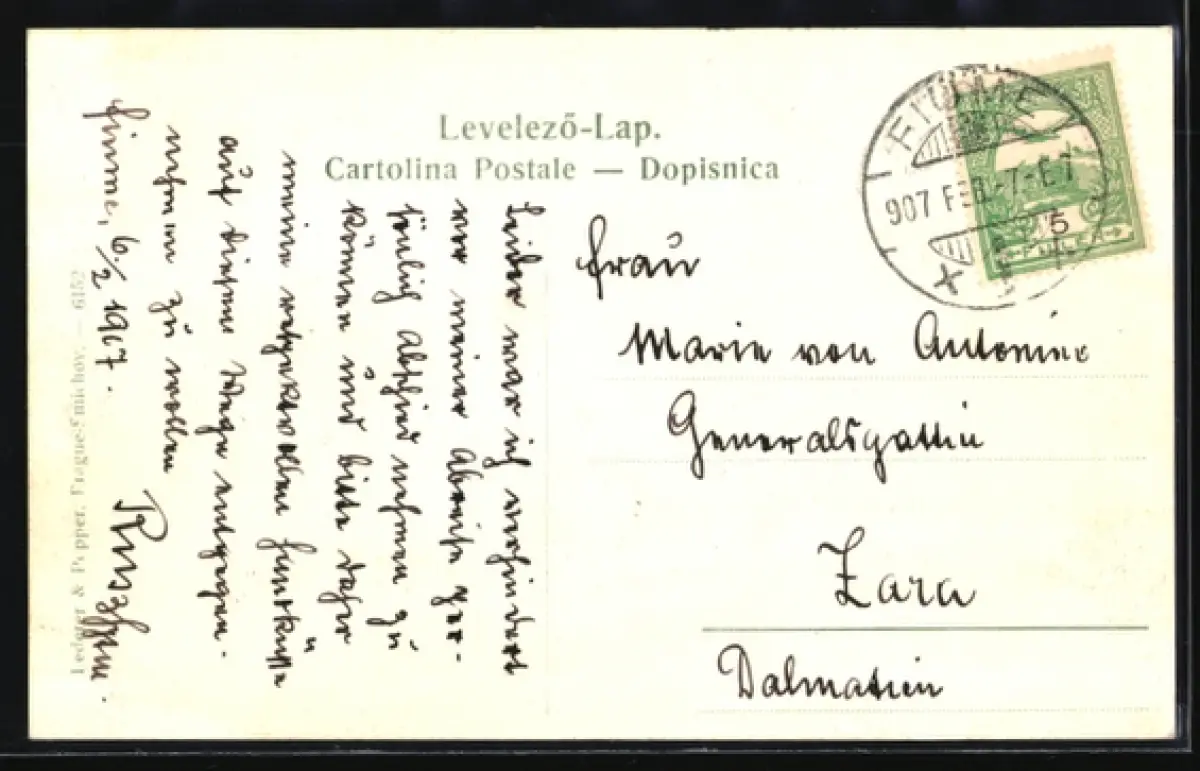 Levelező-Lap.
Cartolina Postale — Dopisnica
FIUME
907 FEB.-7-
5
FILLÉR
Frau
Marie von Antonino
Generalsgattin
Zara
Dalmatien
Leider war ich verhindert
vor meiner Abreise per-
sönlich Abschied nehmen zu
können und bitte daher
meinen respektvollen
auf diesem Wege entgegen-
nehmen zu wollen
Fiume, 6./2 1907.
Lederer & Popper, Prague-Smichov. — 6152